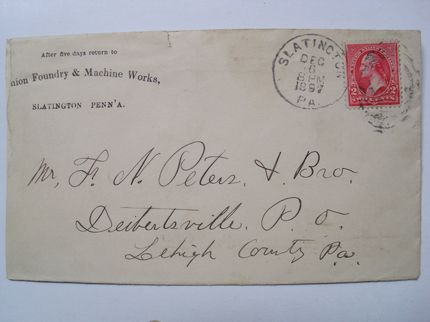 After five days return to
nion Foundry & Machine Works,
SLATINGTON PENN'A.
SLATINGTON
DEC
6
8 PM
1897
PA.
2 2
Mr, F. N. Peters, & Bro.
Deibertsville, P. O.
Lehigh County Pa.